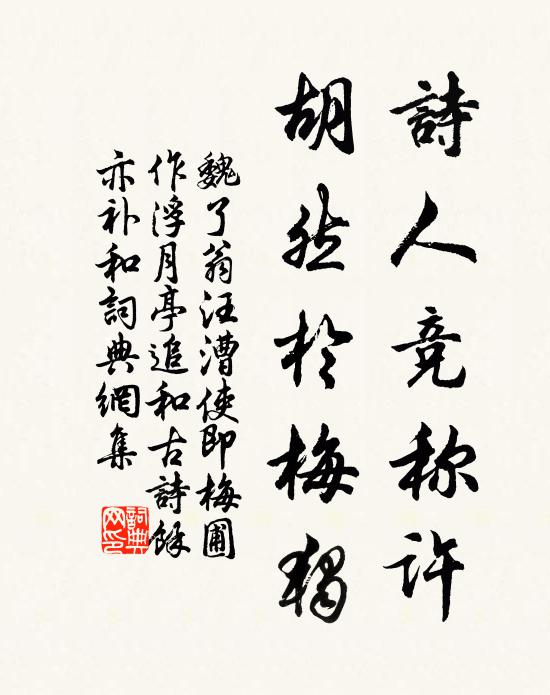 詩人竞称许
胡然於梅独
魏了翁汪漕使即梅圃
作浮月亭追和古詩餘
亦补和詞典網集
詞典
网印